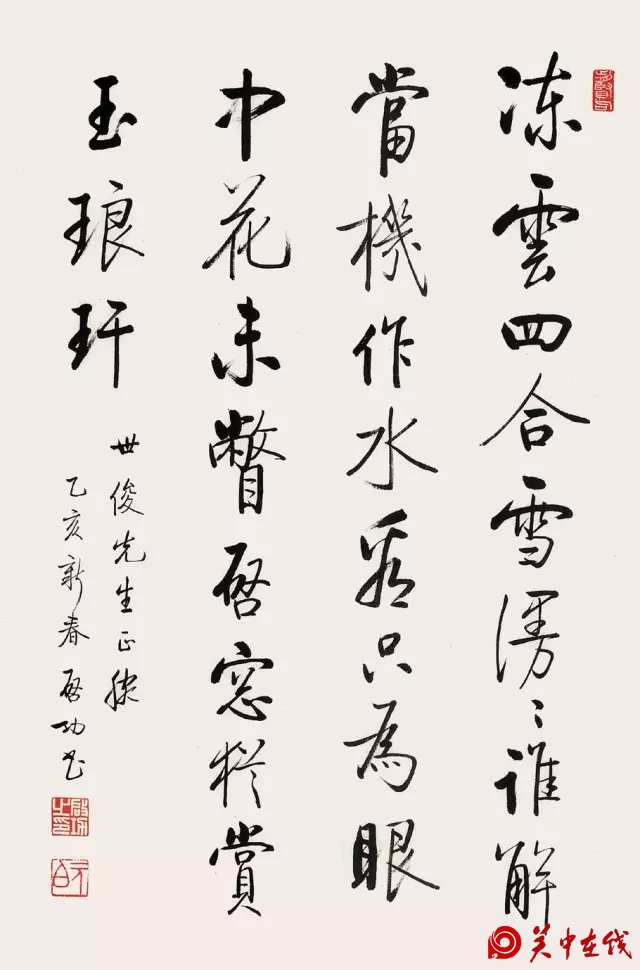 凍雲四合雪漫〻誰解
當機作水看只為眼
中花未瞥啓窓猶賞
玉琅玕
世俊先生正腕
乙亥新春啓功書
啟功之印
元白
关中在线